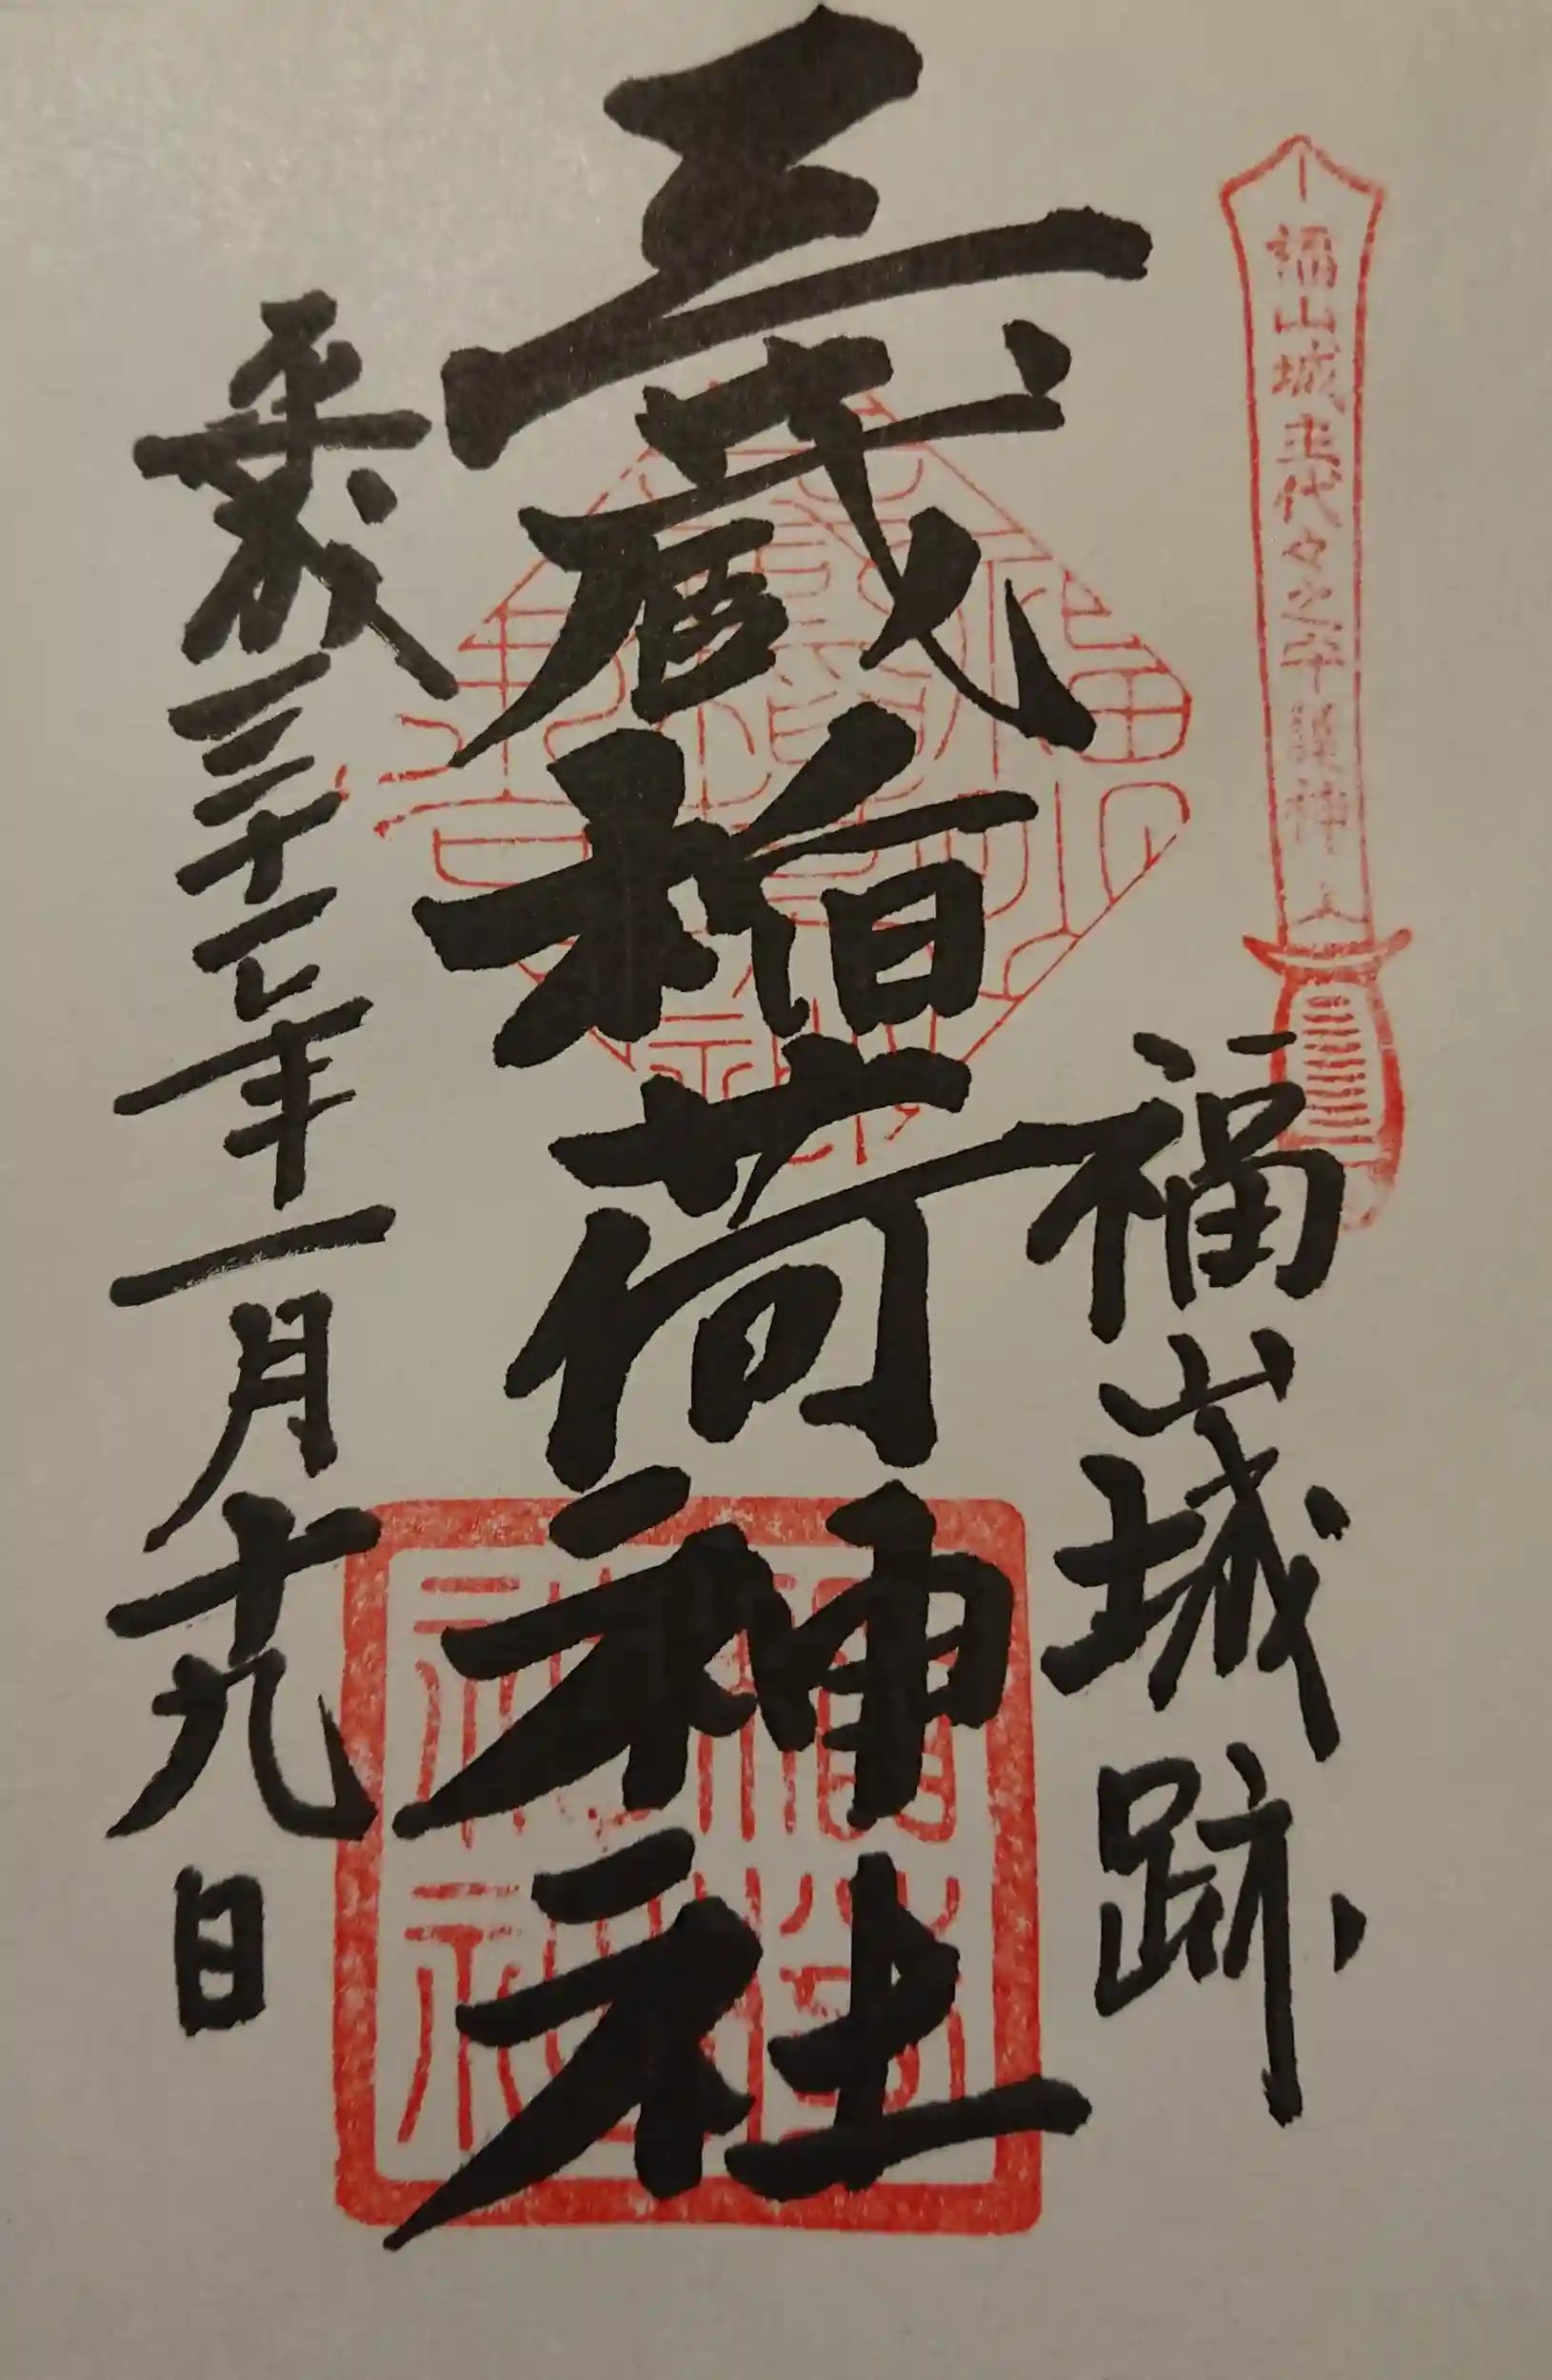 福山城主代々之守護神
福山城跡
三蔵稲荷神社
稲荷
神社
平成三十一年一月十九日